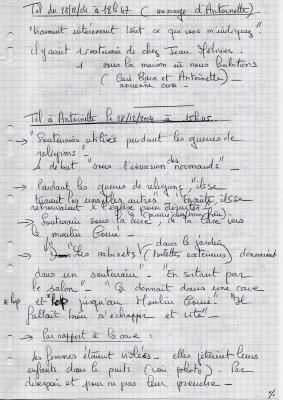 Tel du 23/12/04 à 18h47 (message d'Antoinette)
"Vraiment intéressant tout ce que vous m'indiquez"
il y avait souterrain de chez Jean
1 sous la maison où nous habitions
(Caré Bara et Antoinette) -
ancienne cure -
Tel à Antoinette le 28/12/2004 à 15h45.
→ "Souterrains utilisés pendant les guerres de
religions -
+ début "sous l'invasion des normands" -
→ Pendant les guerres de religions, "ils se
tuaient les uns les autres" "Ensuite, ils se
retrouvaient à l'église pour
→ Souterrain sous la cure, de la cave vers
le moulin Comé -
dans le jardin
→ "Les cabinets (toilettes extérieures) donnaient
dans un souterrain" - "En sortant par
le salon" - "Ça donnait dans une cave
*hop et *hop jusqu'au Moulin Comé" "Il
fallait bien s'échapper et vite" -
→ Par rapport à la cure :
Les femmes étaient violées - elles jetaient leurs
enfants dans le puits (voir photo) - Par
désespoir et pour ne pas leur prendre -